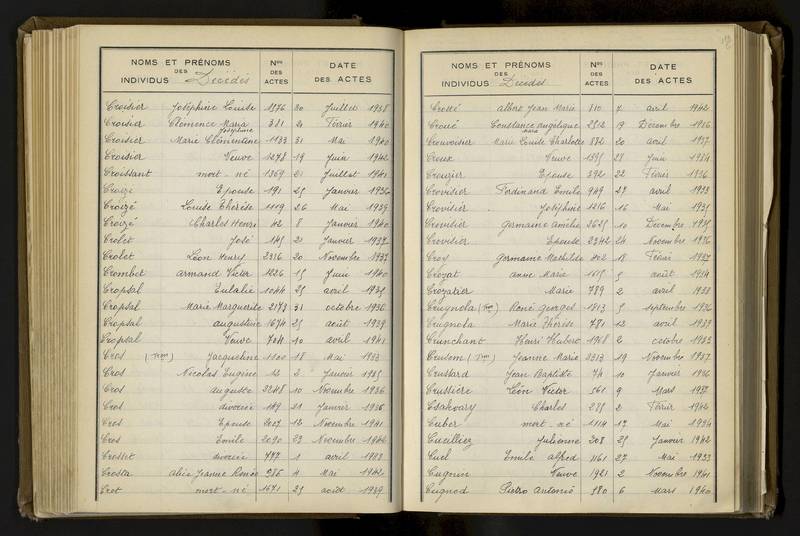 NOMS ET PRÉNOMS
DES
INDIVIDUS Décédés
Nos
DES
ACTES
DATE
DES ACTES
Croisier Joséphine Louise 1576 30 Juillet 1938
Croisier Clémence Maria 381 2 Février 1940
Joséphine
Croisier Marie Clémentine 1133 31 Mai 1940
Croisier Veuve 1278 19 Juin 1942
Croissant mort-né 1369 21 Juillet 1941
Croizé Epouse 191 25 Janvier 1936
Croizé Louise Thérèse 1119 26 Mai 1939
Croizé Charles Henri 42 8 Janvier 1940
Crolet José 145 21 Janvier 1937
Crolet Léon Henry 2316 20 Novembre 1933
Crombet armand Victor 1226 15 Juin 1940
Cropsal Eulalie 1044 25 avril 1935
Cropsal Marie Marguerite 2173 31 octobre 1936
Cropsal augustine 1674 25 août 1939
Cropsal Veuve 704 10 avril 1941
Cros Jacqueline 1100 18 Mai 1933
Cros Nicolas Eugène 12 2 Janvier 1935
Cros auguste 2248 10 Novembre 1936
Cros divorcée 149 21 Janvier 1936
Cros Epouse 2027 12 Novembre 1941
Cros Emile 2090 23 Novembre 1942
Crosset divorcée 777 1 avril 1933
Crosta alice Jeanne Renée 986 4 Mai 1942
Crot mort-né 1671 25 août 1939
NOMS ET PRÉNOMS
DES
INDIVIDUS Décédés
Nos
DES
ACTES
DATE
DES ACTES
Crotté albert Jean Marie 810 7 avril 1942
Croué Constance angélique 2512 19 Décembre 1936
Marie
Crouvoisier Marie Louise Charlotte 872 20 avril 1937
Croux Veuve 1395 28 Juin 1934
Crouzier Epouse 392 22 Février 1936
Crovisier Ferdinand Emile 949 27 avril 1933
Crovisier Joséphine 1216 16 Mai 1935
Crovisier Germaine Amélie 2625 10 Décembre 1935
Crovisier Epouse 2342 24 Novembre 1936
Croy Germaine Mathilde 402 18 Février 1937
Crozat anne Marie 1615 5 août 1934
Crozatier Marie 789 2 avril 1938
Crugnola René Georges 1813 5 septembre 1936
Crugnola Marie Thérèse 781 12 avril 1939
Crunchant Henri Hubert 1968 2 octobre 1933
Crusom Jeanne Marie 2313 19 Novembre 1937
Crussard Jean Baptiste 74 10 Janvier 1936
Crussière Léon Victor 561 9 Mars 1937
Csakvary Charles 285 2 Février 1942
Cuber mort-né 1114 17 Mai 1934
Cucilliez Julienne 208 25 Janvier 1942
Cuel Emile alfred 1161 27 Mai 1933
Cugnin Veuve 1921 2 Novembre 1941
Cugnod Pietro Antonio 980 6 Mars 1940